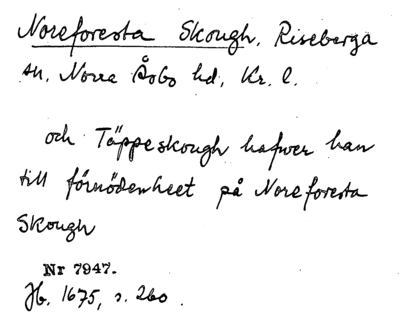 Noreforesta Skough, Riseberga
sn, Norra Åsbo hd, Kr. l.
och Täppeskough hafwer han
till förnödenheet på Noreforesta
Skough
Nr 7947.
Jb. 1675, s. 260.